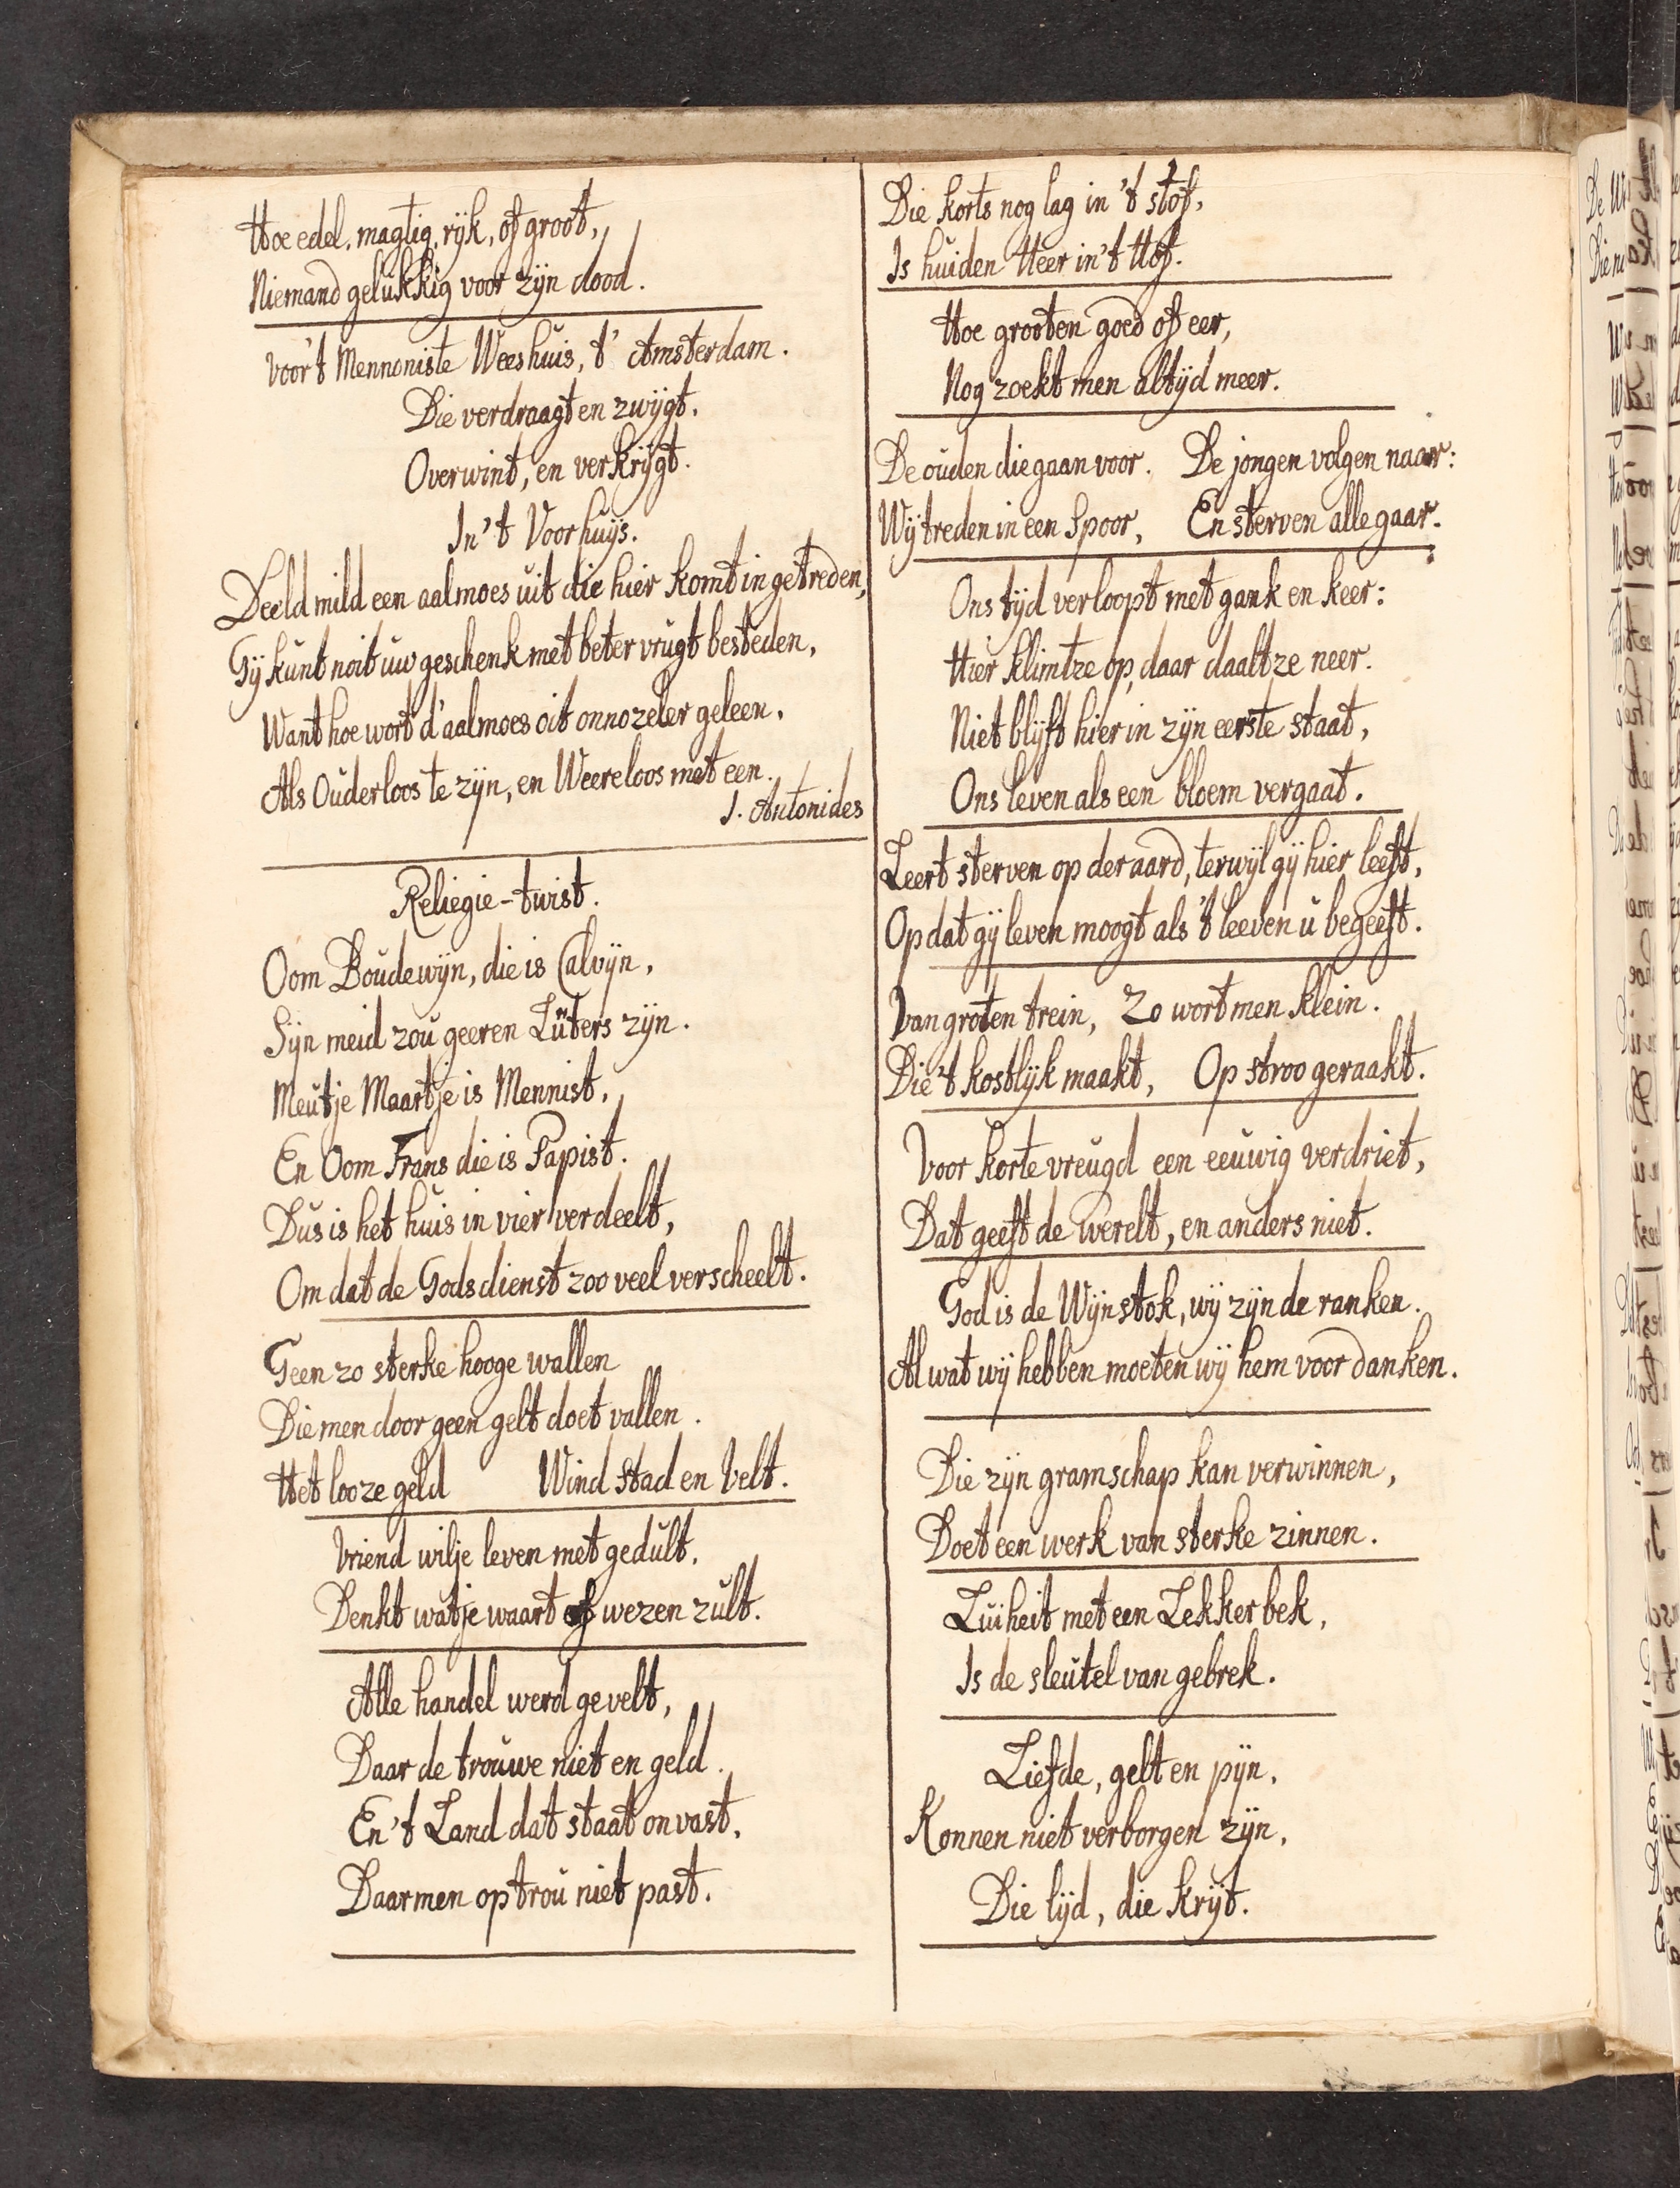 Hoe edel, magtig, rijk, of groot,
Niemand gelukkig voor zijn dood.
Voor 't Mennoniste Weeshuis, t' Amsterdam.
Die verdraagt en zwijgt,
Overwint, en verkrijgt.
In 't Voorhuijs.
Deeld mild een aalmoes uit die hier komt in getreden,
Gij kunt noit uw geschenk met beter vrugt besteden,
Want hoe wort d'aalmoes oit onnozeler geleen,
Als Ouderloos te zijn, en Weereloos met een.
J. Antonides
Reliegie-twist.
Oom Boudewijn, die is Calvijn,
Sijn meid zou geeren Luters zijn.
Meutje Maartje is Mennist,
En Oom Frans die is Papist.
Dus is het huis in vier verdeelt,
Om dat de Godsdienst zoo veel verscheelt.
Geen zo sterke hooge wallen
Die men door geen gelt doet vallen.
Het looze geld Wind Stad en Velt.
Vriend wilje leven met gedult,
Denkt watje waart of wezen zult.
Alle handel werd gevelt,
Daar de trouwe niet en geld.
En 't Land dat staat onvast,
Daar men op trou niet past.
Die korts nog lag in 't stof,
Is huiden Heer in 't Hof.
Hoe grooten goed of eer,
Nog zoekt men altijd meer.
De ouden die gaan voor. De jongen volgen naar:
Wij treden in een Spoor, En sterven alle gaar.
Ons tijd verloopt met gank en keer:
Hier klimtze op, daar daaltze neer.
Niet blijft hier in zijn eerste staat,
Ons leven als een bloem vergaat.
Leert sterven op der aard, terwijl gij hier leeft,
Op dat gij leven moogt als 't leeven u begeeft.
Van groten trein, Zo wort men klein.
Die 't kostlijk maakt, Op stroo geraakt.
Voor korte vreugd een eeuwig verdriet,
Dat geeft de werelt, en anders niet.
God is de Wijnstok, wij zijn de ranken.
Al wat wij hebben moeten wij hem voor danken.
Die zijn gramschap kan verwinnen,
Doet een werk van sterke zinnen.
Luiheit met een Lekkerbek,
Is de sleutel van gebrek.
Liefde, gelt en pijn,
Konnen niet verborgen zijn,
Die lijd, die krijt.